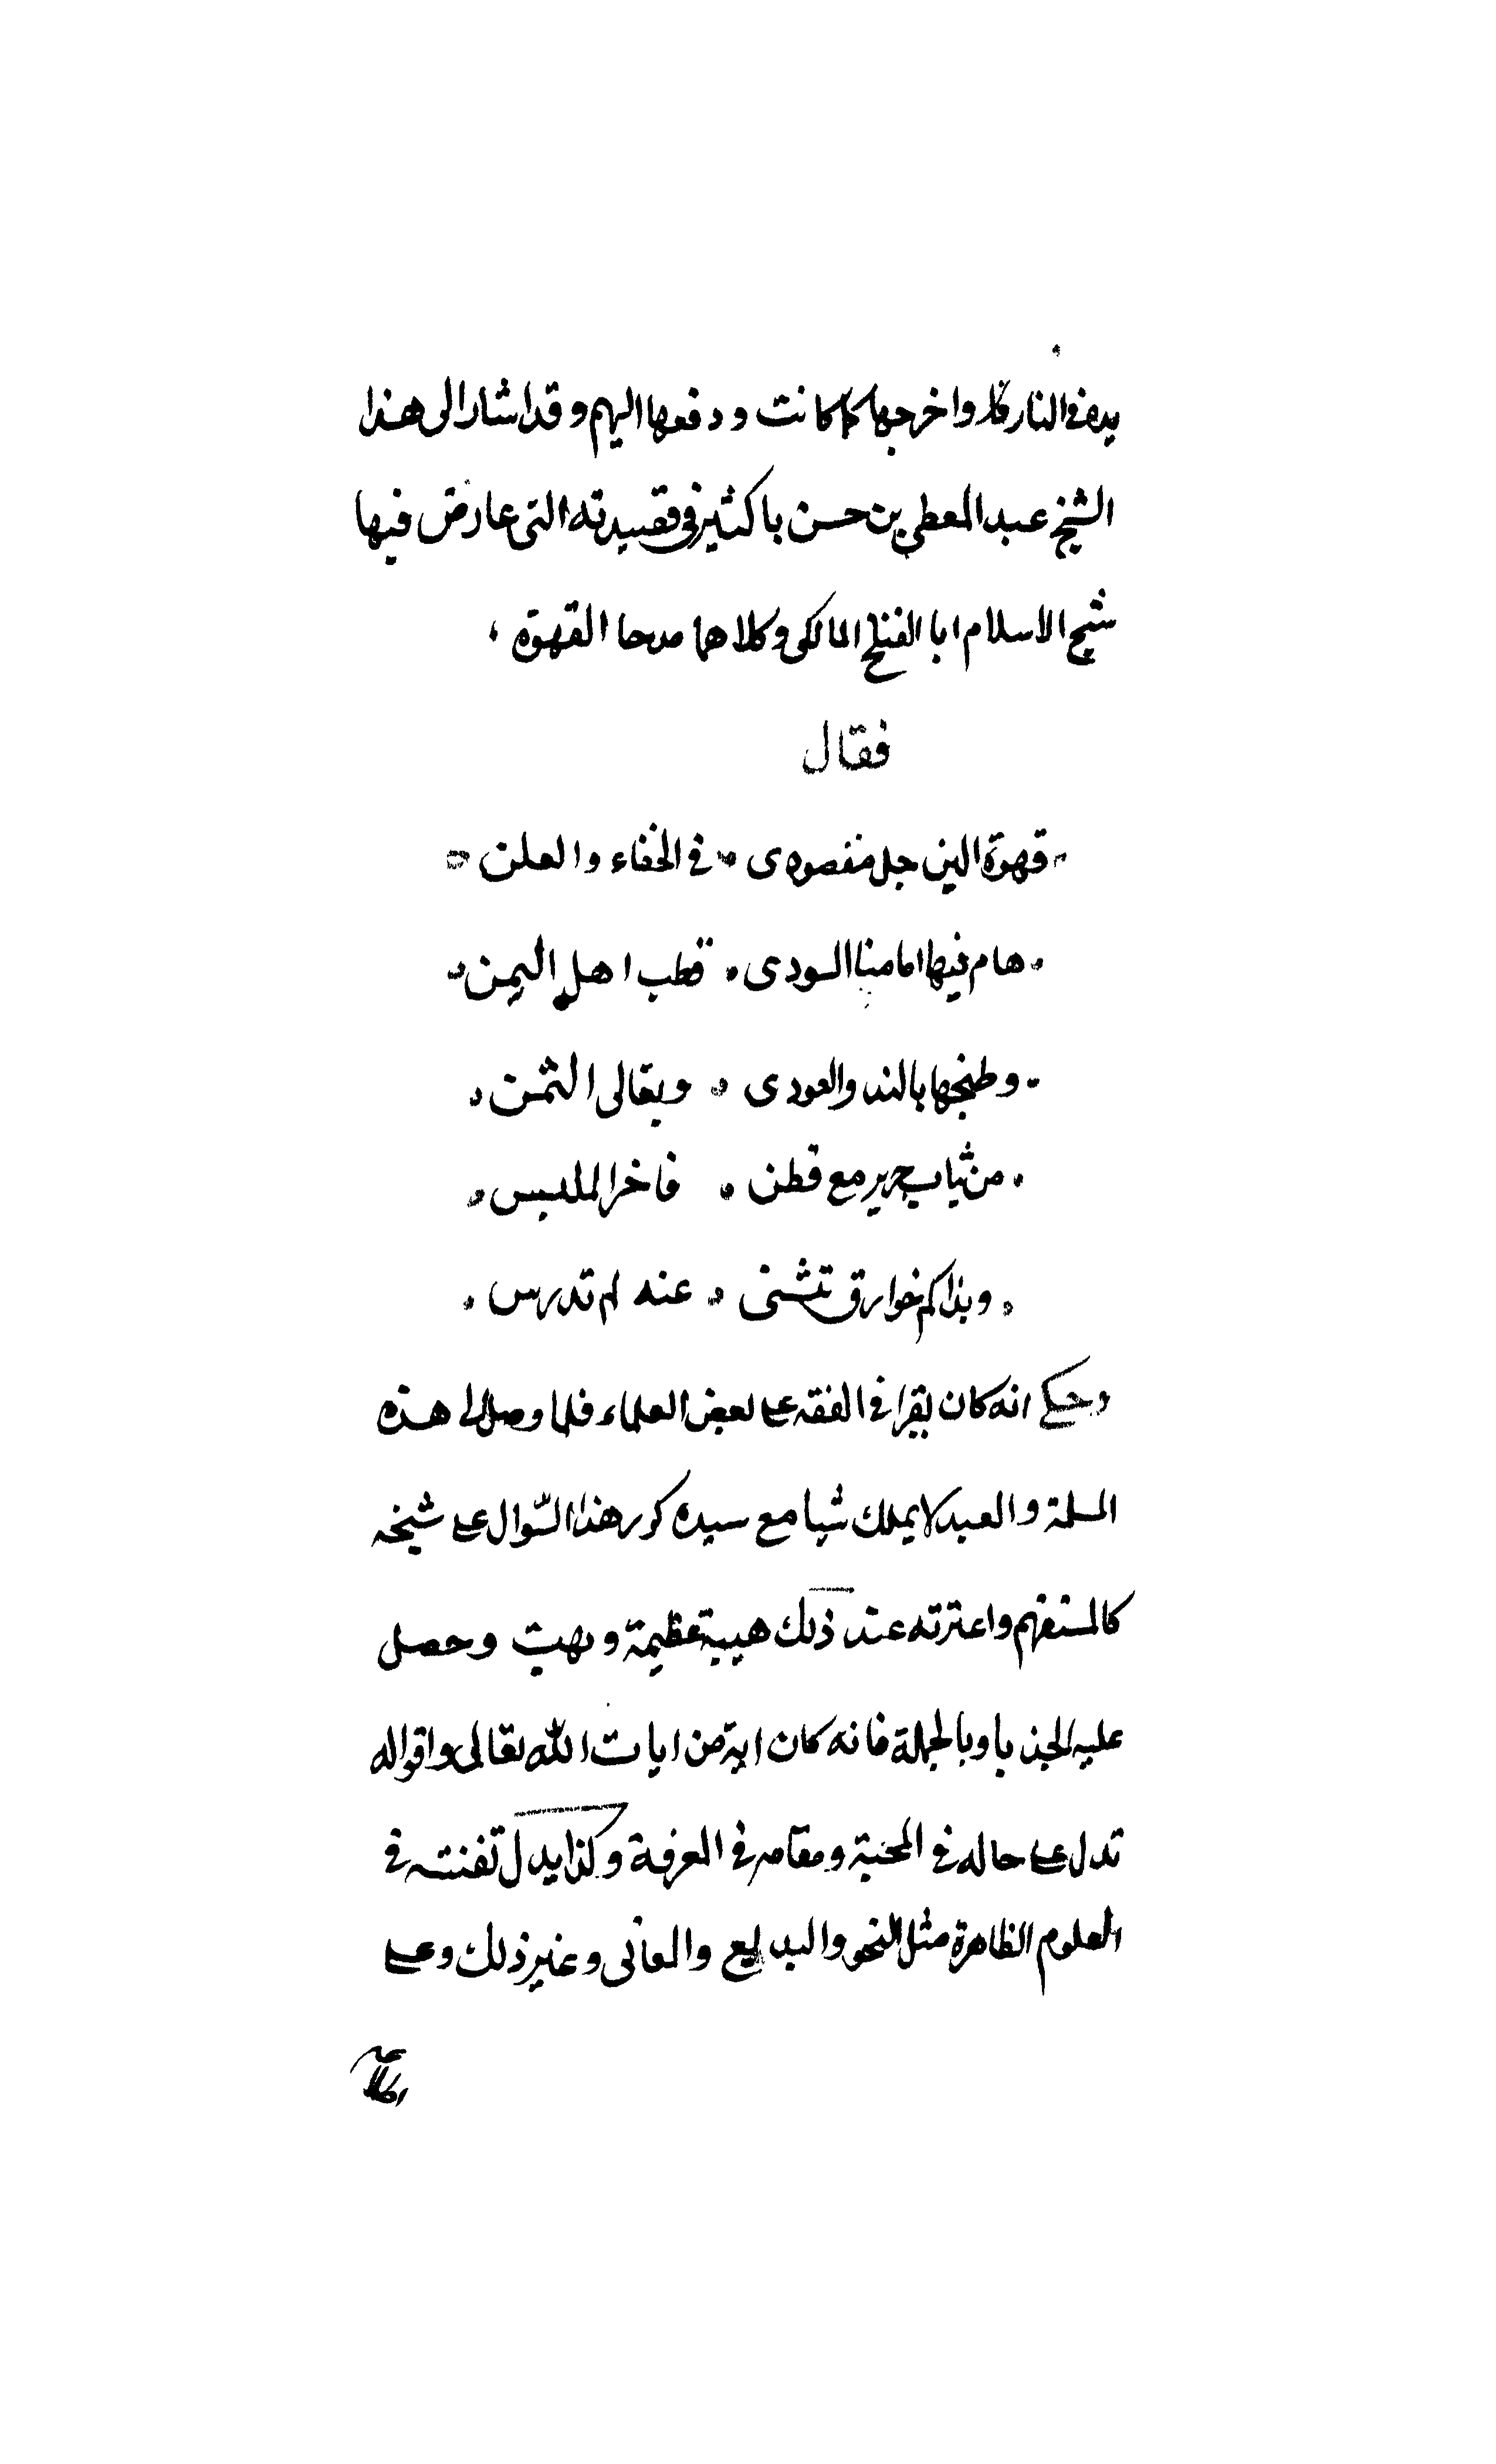 يده في النار واخرجها كما كانت ودفعها اليهم وقد اشار الى هذا
الشيخ عبد المعطي بن حسن باكثير في قصيدته التى عارض فيها
شيخ الاسلام ابا الفتح المالكى وكلاهما مدحا القهوة ،
فقال
قهوة البن جل مقصودى في الخفاء والعلن
هام فيها امامنا السودى قطب اهل اليمن
وطبخها بالند والعودى وبغالى الثمن
من ثياب حرير مع قطن فاخر الملبس
وبذا كم خوارق تثنى عنه لم تدرس
وحكى انه كان يقرا في الفقه على بعض العلماء فلما وصل الى هذه
المسلة والعبد لا يملك شيا مع سيده كرر هذا السّوال على شيخه
كالمستفهم واعترته عند ذلك هيبة عظيمة وبهت وحصل
عليه الجذب اوبالجملة فانه كان اية من ايات الله تعالى واقواله
تدل على حاله في المحبة ومقامه في المعرفة وكذا يدل تفننه في
العلوم الظاهرة مثل النحو والبديع والمعانى وغير ذلك وعلى